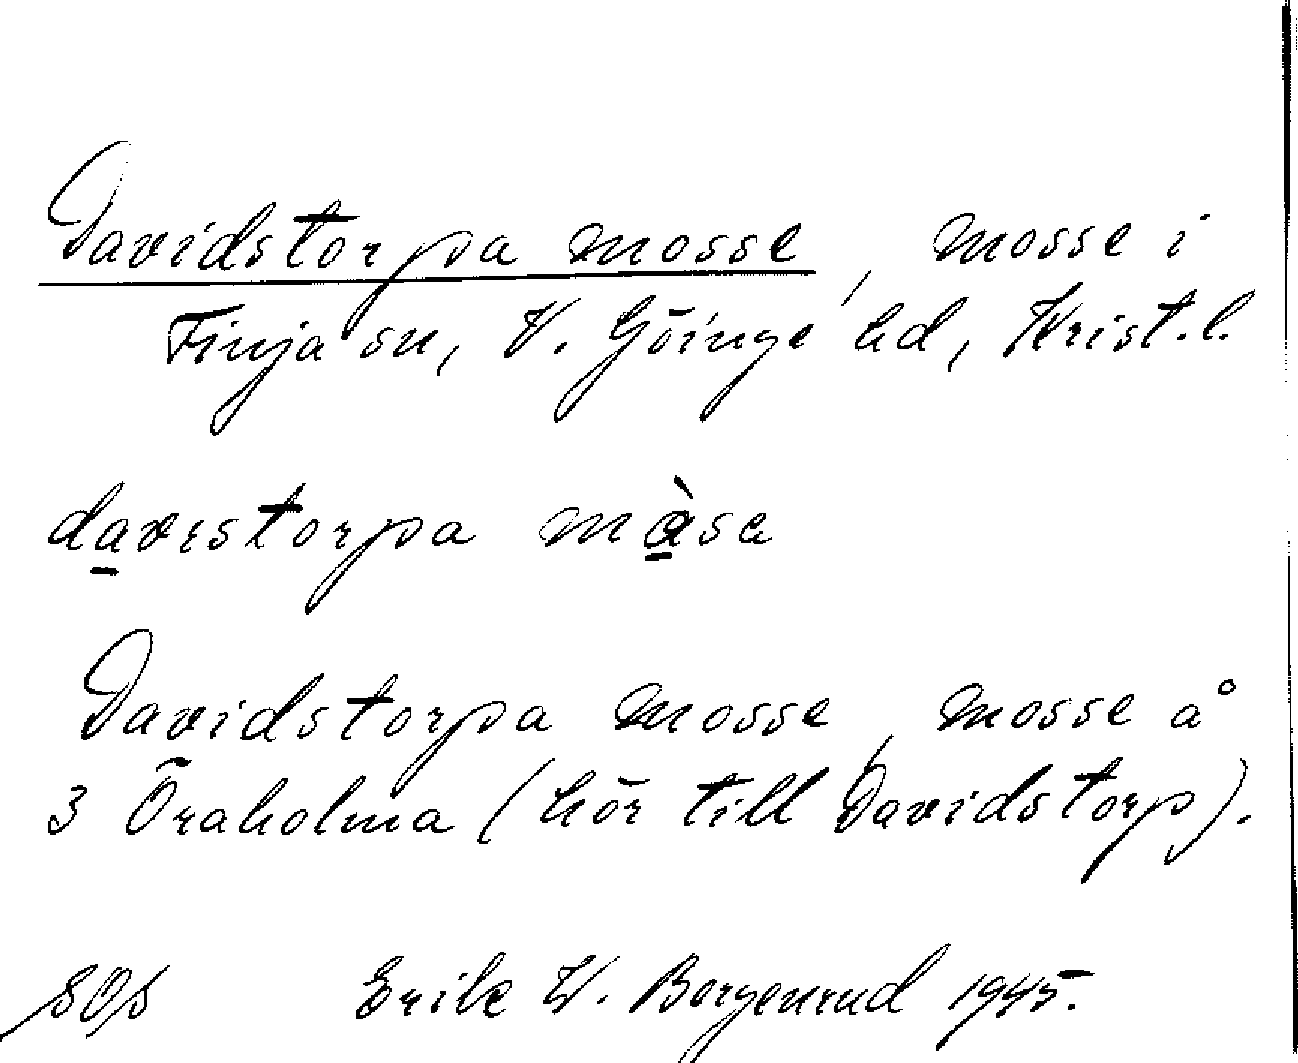 Davidstorpa mosse, mosse i
Finja sn, V. Göinge hd, Krist.l.
davɪstorpa mɑ̀sa
Davidstorpa mosse, mosse å
3 Öraholma (hör till Davidstorp).
Erik W. Borgenrud 1945.